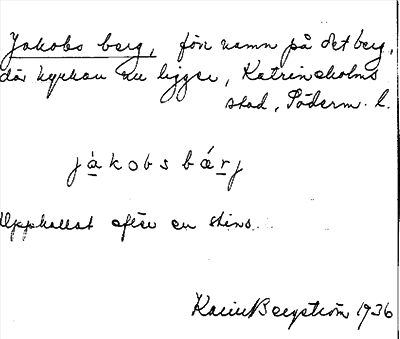 Jakobs berg, förr namn på det berg,
där kyrkan nu ligger, Katrineholms
stad, Söderm. l.
jàkobsbárj
Uppkallat efter en stins.
Karin Bergström 1936